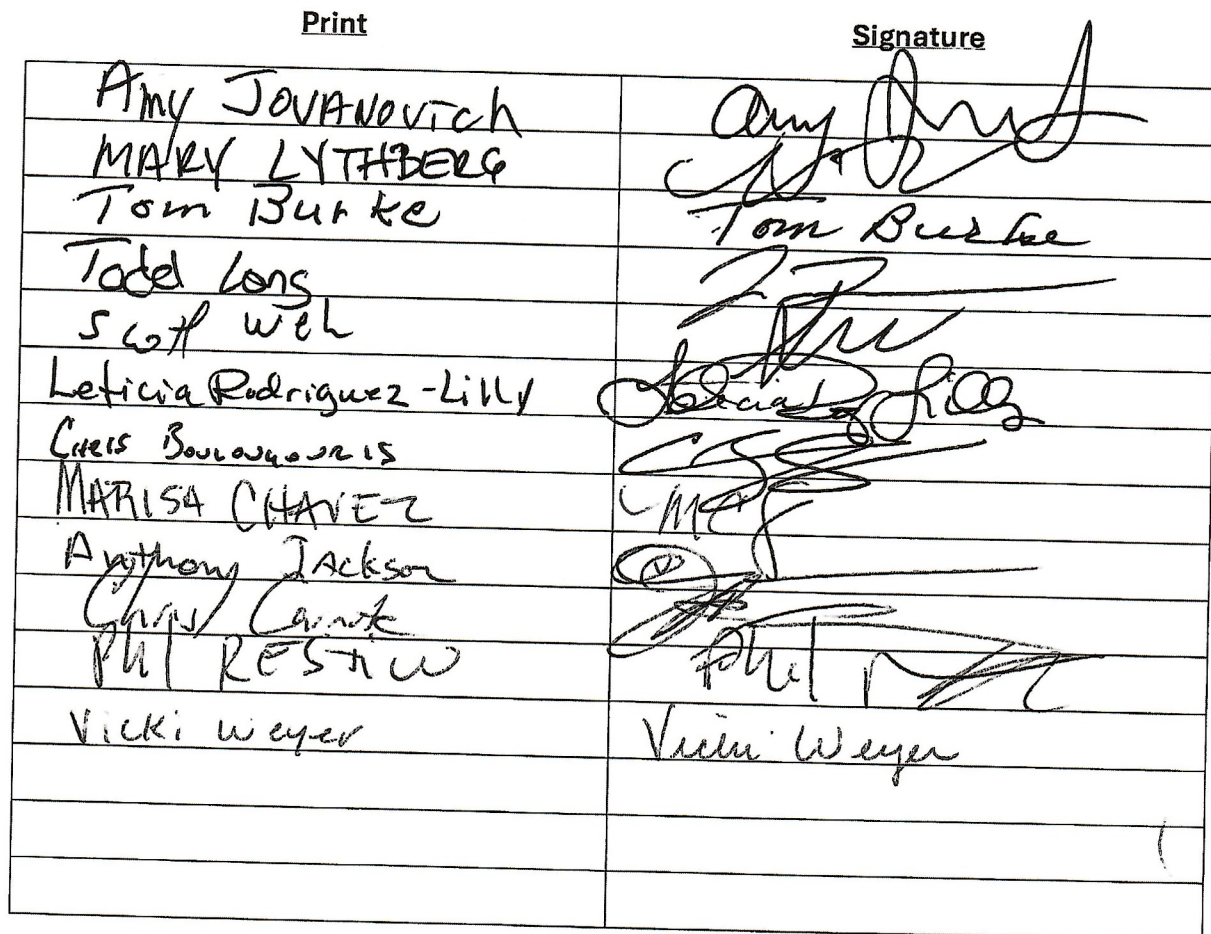 Print Signature
Amy JOVANOVICH Amy
MARY LYTHBERG
Tom Burke Tom Burke
Todd Long
Scott Weh
Leticia Rodriguez-Lilly Leticia Lilly
CHRIS BOULOUGOURIS
MARISA CHAVEZ MC
Anthony JACKSON
Chris
Phil RESTIVO Phil
Vicki Weyer Vicki Weyer